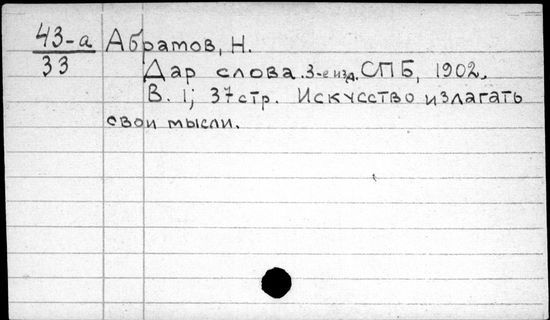 43-а Абрамов, Н.
33
Дар слова. 3-е изд. СПБ, 1902.
В. 1; 37 стр. Искусство излагать
свои мысли.